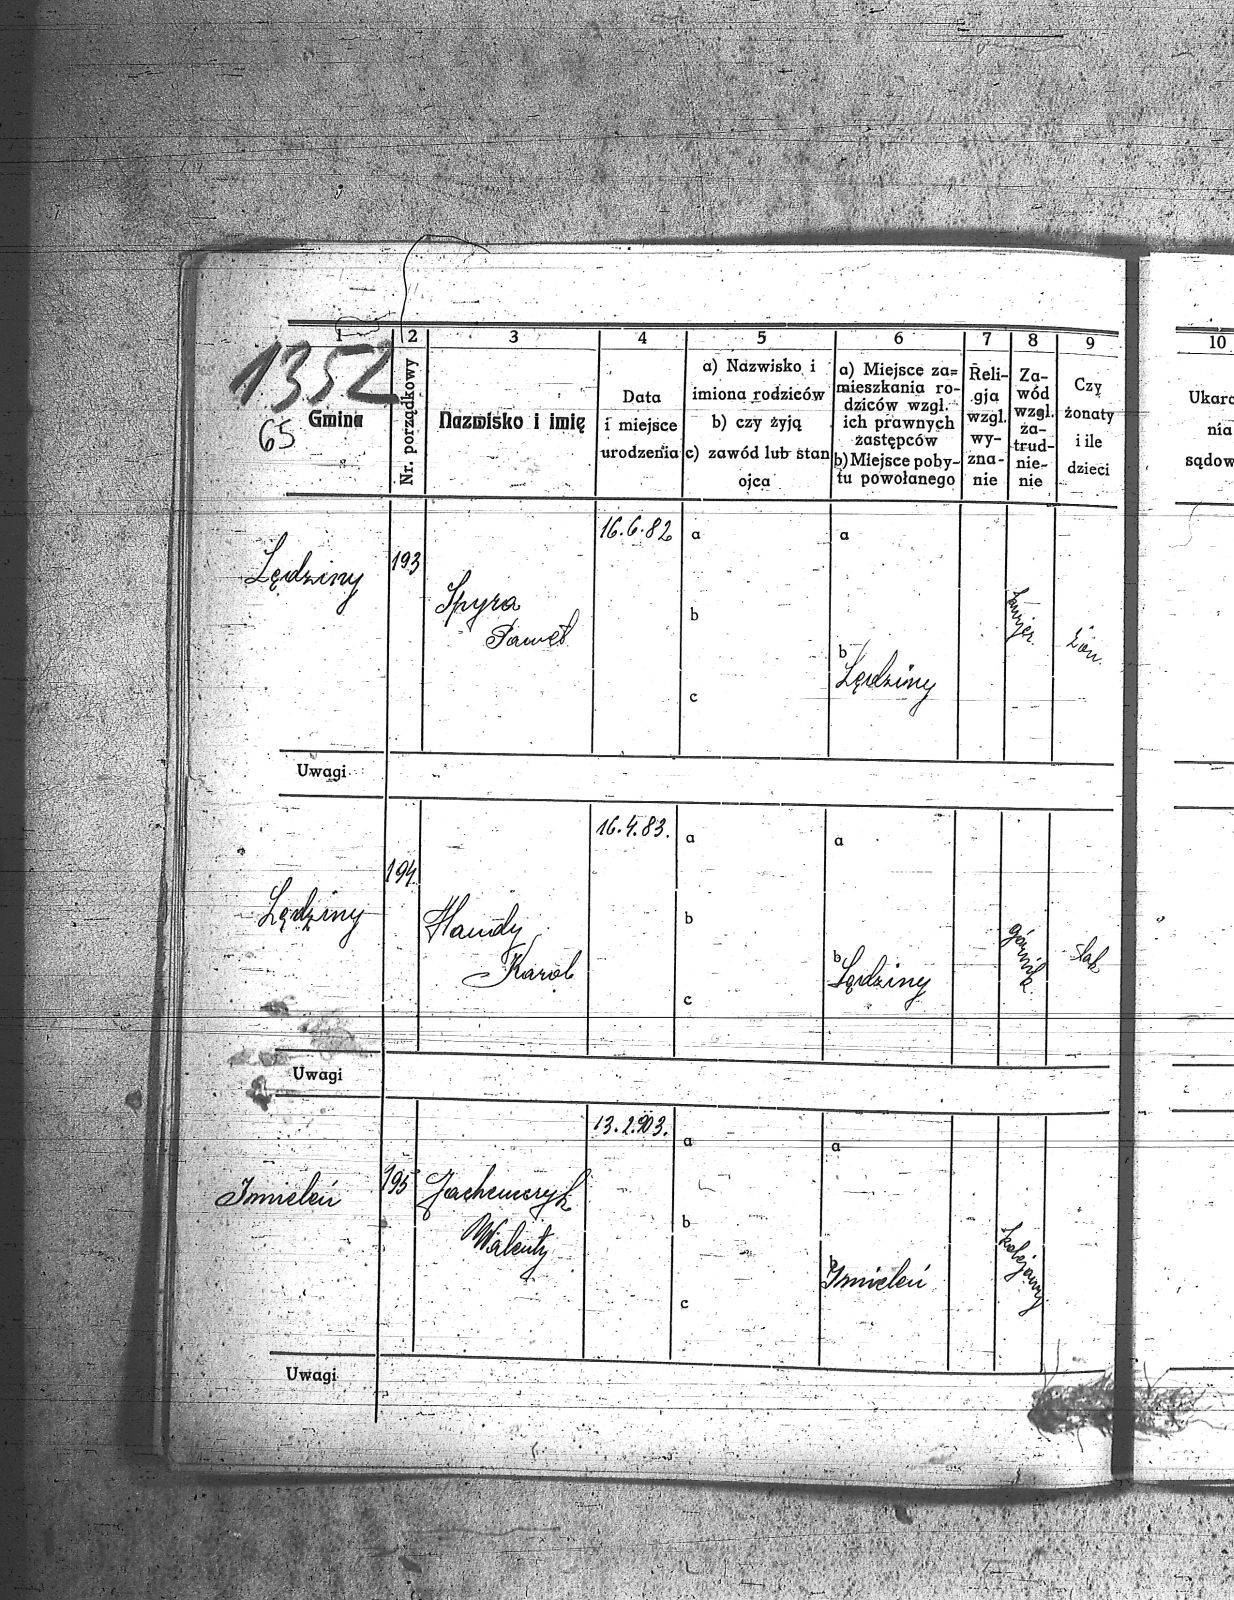 1 2 3 4 5 6 7 8 9 10
1352
65
Gmina
Nr. porządkowy
Nazwisko i imię
Data
i miejsce
urodzenia
a) Nazwisko i
imiona rodziców
b) czy żyją
c) zawód lub stan
ojca
a) Miejsce za=
mieszkania ro-
dziców wzgl.
ich prawnych
zastępców
b) Miejsce poby-
tu powołanego
Reli-
gja
wzgl.
wy-
zna-
nie
Za-
wód
wzgl.
za-
trud-
nie-
nie
Czy
żonaty
i ile
dzieci
Ukara
nia
sądow
Lędziny
193
Spyra
Paweł
16.6.82
a
b
c
a
b
Lędziny
żon.
Uwagi
Lędziny
194.
Handy
Karol
16.4.83.
a
b
c
a
b
Lędziny
górnik
Uwagi
Imieleń
195
Jachemczyk
Walenty
13.2.903.
a
b
c
a
b
Imieleń
kolejowy
Uwagi